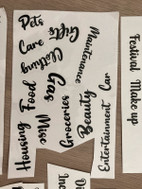 Pets
Gifts
Care
Clothing
Maintenance
Gas
Car
Food
Beauty
Groceries
Misc
Housing
Entertainment
Festival
Make up